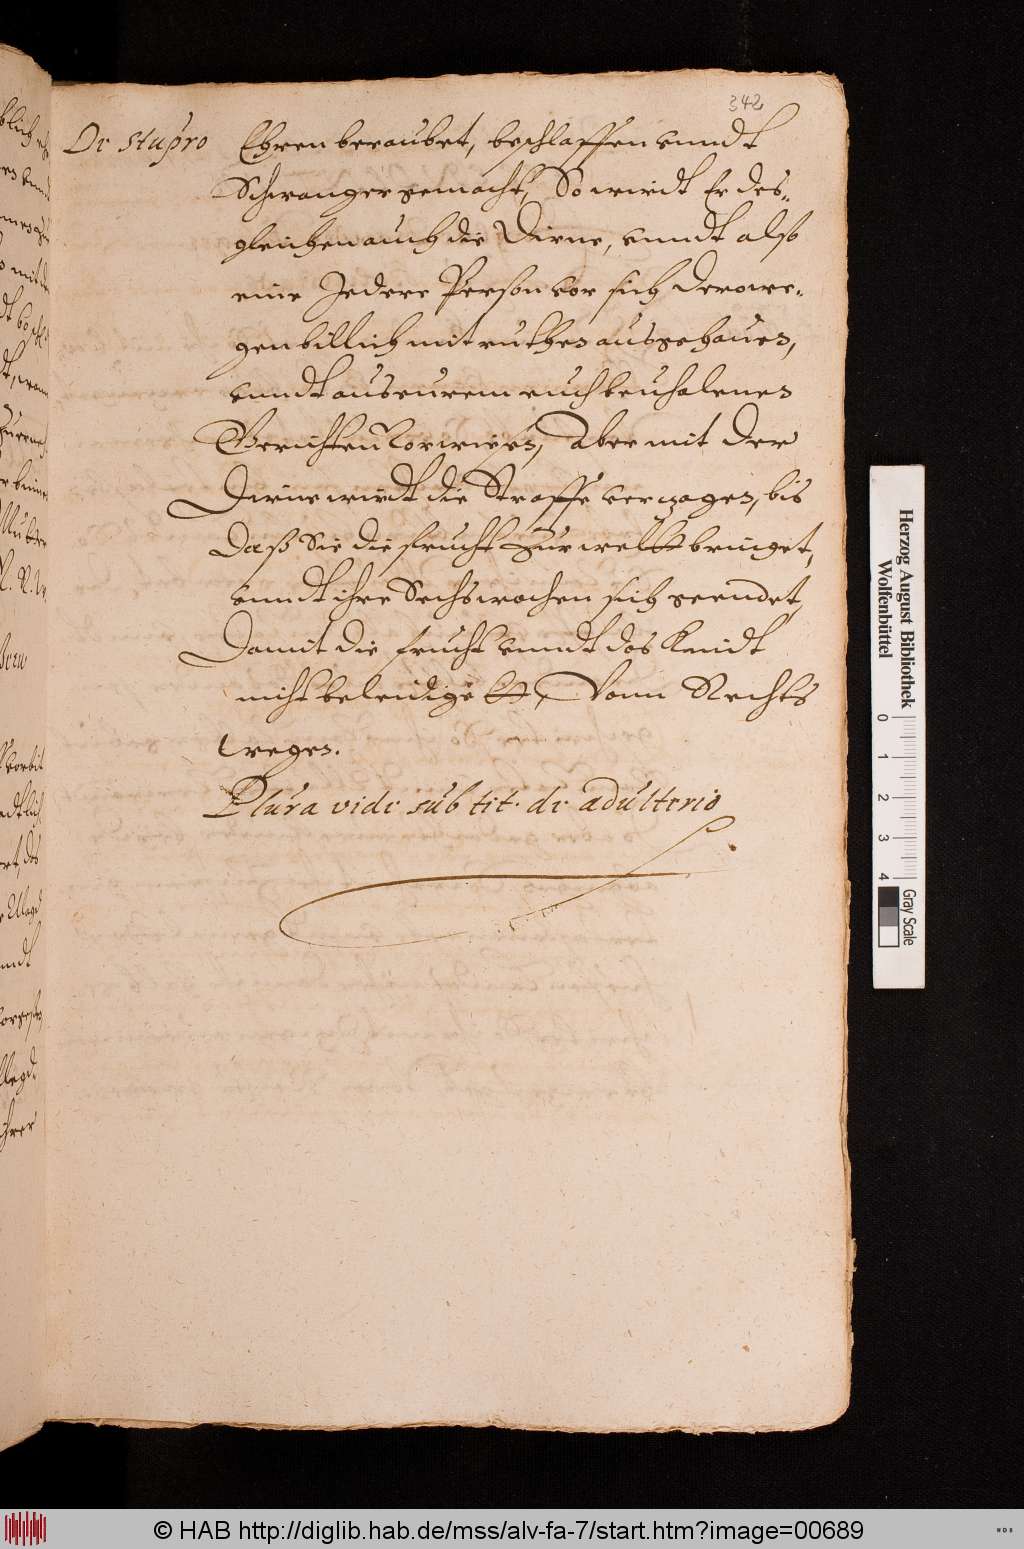 342
De stupro
Ehren beraubet, beschlaffen vnndt
Schwanger gemacht, So wirdt Er des„
gleichen auch die Dirne, vnndt also
eine Jedere Person vor sich derowe„
gen billich mit ruthen ausgehauen,
vnndt aus eurem euch beuholenen
Gerichten vorwiesen, Aber mit der
Dirne wirdt die Straffe verzogen, bis
Daß Sie die frucht zur weltt bringet,
vnndt ihre Sechswochen sich geendet,
Damit die frucht vnndt das Kindt
nicht beleidigett, Vonn Rechts
wegen.
Plura vide sub tit. de adulterio
Herzog August Bibliothek
Wolfenbüttel
0 1 2 3 4
Gray Scale
© HAB http://diglib.hab.de/mss/alv-fa-7/start.htm?image=00689